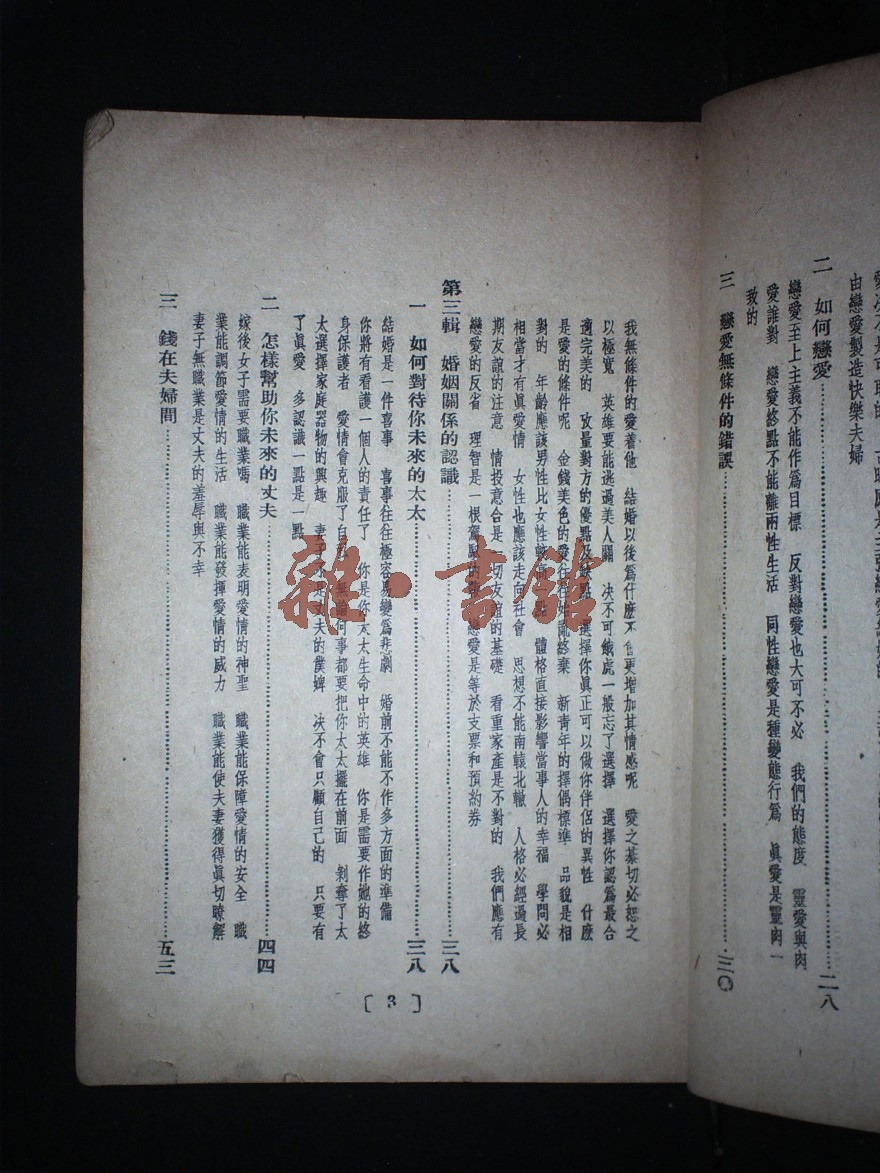 由戀愛製造快樂夫婦
二 如何戀愛……二八
戀愛至上主義不能作爲目標 反對戀愛也大可不必 我們的態度 靈愛與肉
愛誰對 戀愛終點不能離兩性生活 同性戀愛是種變態行爲 眞愛是靈肉一
致的
三 戀愛無條件的錯誤……三〇
我無條件的愛着他 結婚以後爲什麽不會更增加其情感呢 愛之綦切必恕之
以極寬 英雄要能逃過美人關 決不可餓虎一般忘了選擇 選擇你認爲最合
適完美的 攷量對方的優點及缺點 選擇你眞正可以做你伴侶的異性 什麽
是愛的條件呢 金錢美色的愛往往始亂終棄 新青年的擇偶標準 品貌是相
對的 年齡應該男性比女性較高 點 體格直接影響當事人的幸福 學問必
相當才有眞愛情 女性也應該走向社會 思想不能南轅北轍 人格必經過長
期友誼的注意 情投意合是一切友誼的基礎 看重家產是不對的 我們應有
戀愛的反省 理智是一根駕馭的 戀愛是等於支票和預約券
第三輯 婚姻關係的認識……三八
一 如何對待你未來的太太……三八
結婚是一件喜事 喜事往往極容易變爲悲劇 婚前不能不作多方面的準備
你將有看護一個人的責任了 你是你太太生命中的英雄 你是需要作她的終
身保護者 愛情會克服了自私 無論何事都要把你太太擺在前面 剝奪了太
太選擇家庭器物的興趣 妻子不是丈夫的僕婢 決不會只顧自己的 只要有
了眞愛 多認識一點是一點
二 怎樣幫助你未來的丈夫……四四
嫁後女子需要職業嗎 職業能表明愛情的神聖 職業能保障愛情的安全 職
業能調節愛情的生活 職業能發揮愛情的威力 職業能使夫妻獲得眞切瞭解
妻子無職業是丈夫的羞辱與不幸
三 錢在夫婦間……五三
[3]
雜·書館